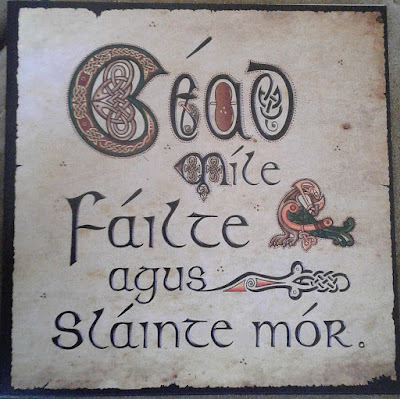 Céad
míle
fáilte
agus
sláinte mór.